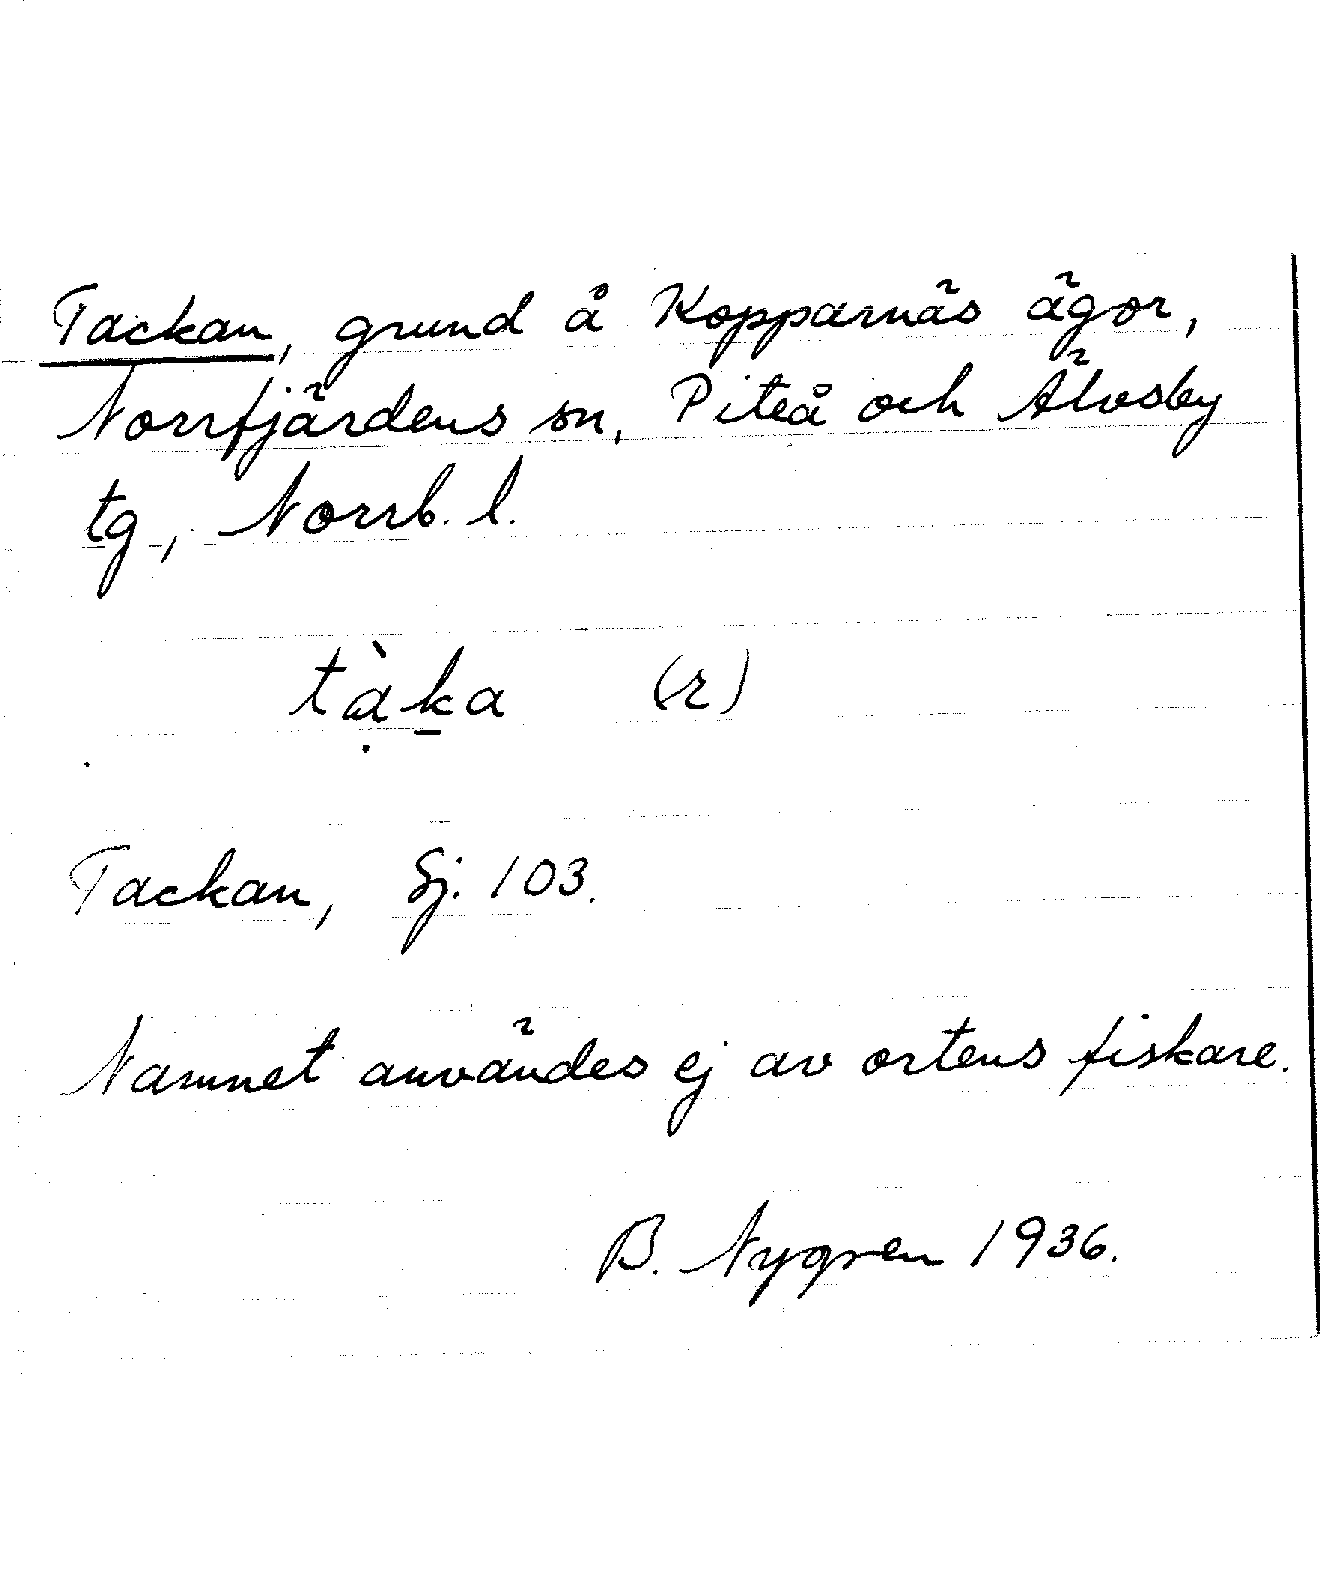 Tackan, grund å Kopparnäs ägor,
Norrfjärdens sn, Piteå och Älvsby
tg, Norrb. l.
tạ̀ḵa (r)
Tackan, Sj. 103.
Namnet användes ej av ortens fiskare.
B. Nygren 1936.